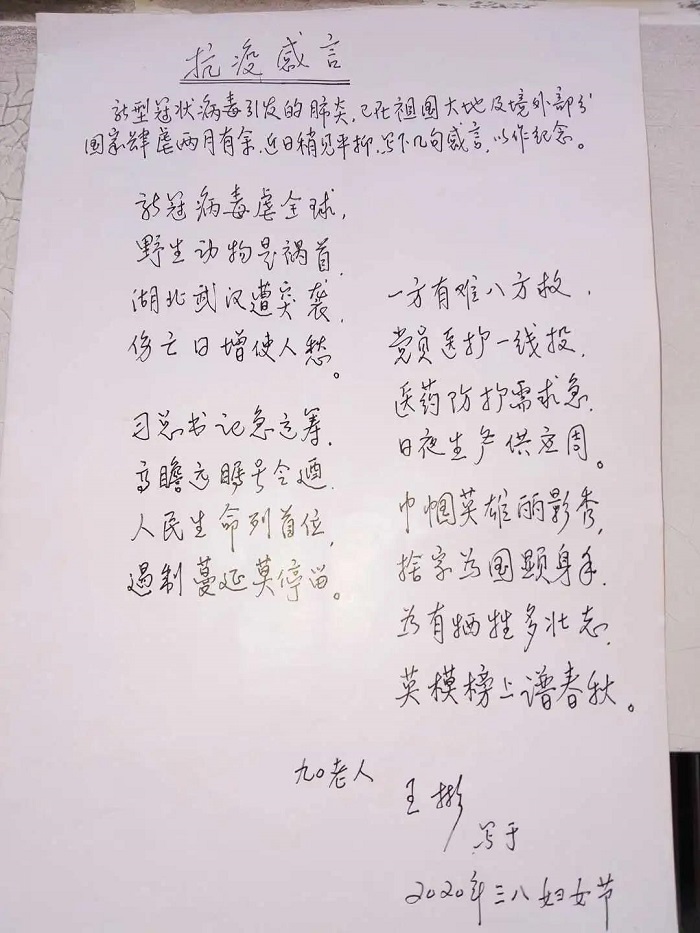 抗疫感言
新型冠状病毒引发的肺炎，已在祖国大地及境外部分
国家肆虐两月有余，近日稍见平抑，写下几句感言，以作纪念。
新冠病毒虐全球，
野生动物是祸首，
湖北武汉遭突袭，
伤亡日增使人愁。
习总书记急运筹，
高瞻远瞩号令遒，
人民生命列首位，
遏制蔓延莫停留。
一方有难八方救，
党员医护一线投，
医药防护需求急，
日夜生产供应周。
巾帼英雄丽影秀，
捨家为国显身手，
为有牺牲多壮志，
英模榜上谱春秋。
九〇老人
王彬
写于
2020年三八妇女节